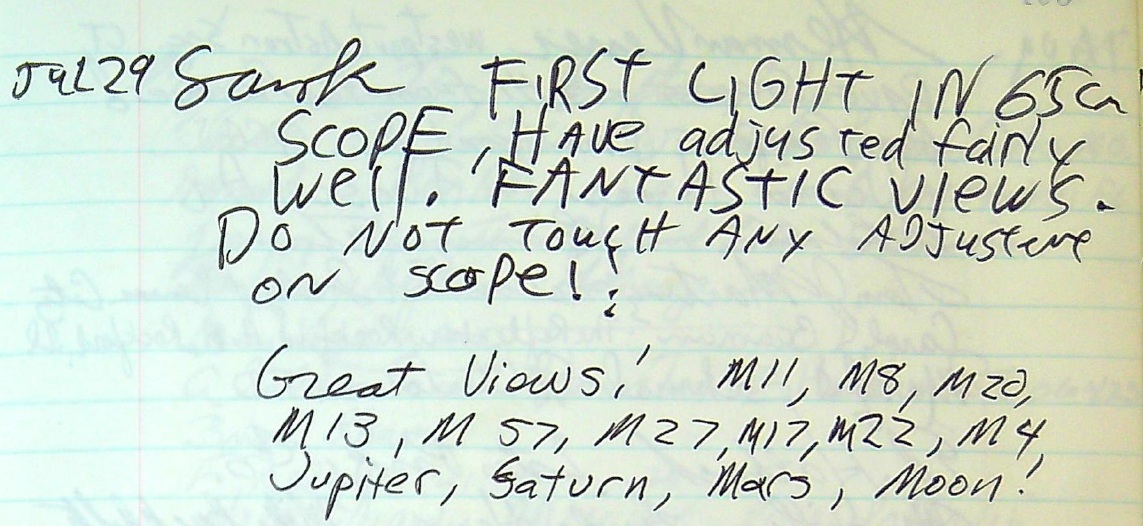 JUL 29 FIRST LIGHT IN 65cm
SCOPE, HAVE adjusted fairly
well. FANTASTIC VIEWS.
DO NOT TOUCH ANY ADJUSTMENT
ON SCOPE!!
Great Views! M11, M8, M20,
M13, M57, M27, M17, M22, M4,
Jupiter, Saturn, Mars, Moon!